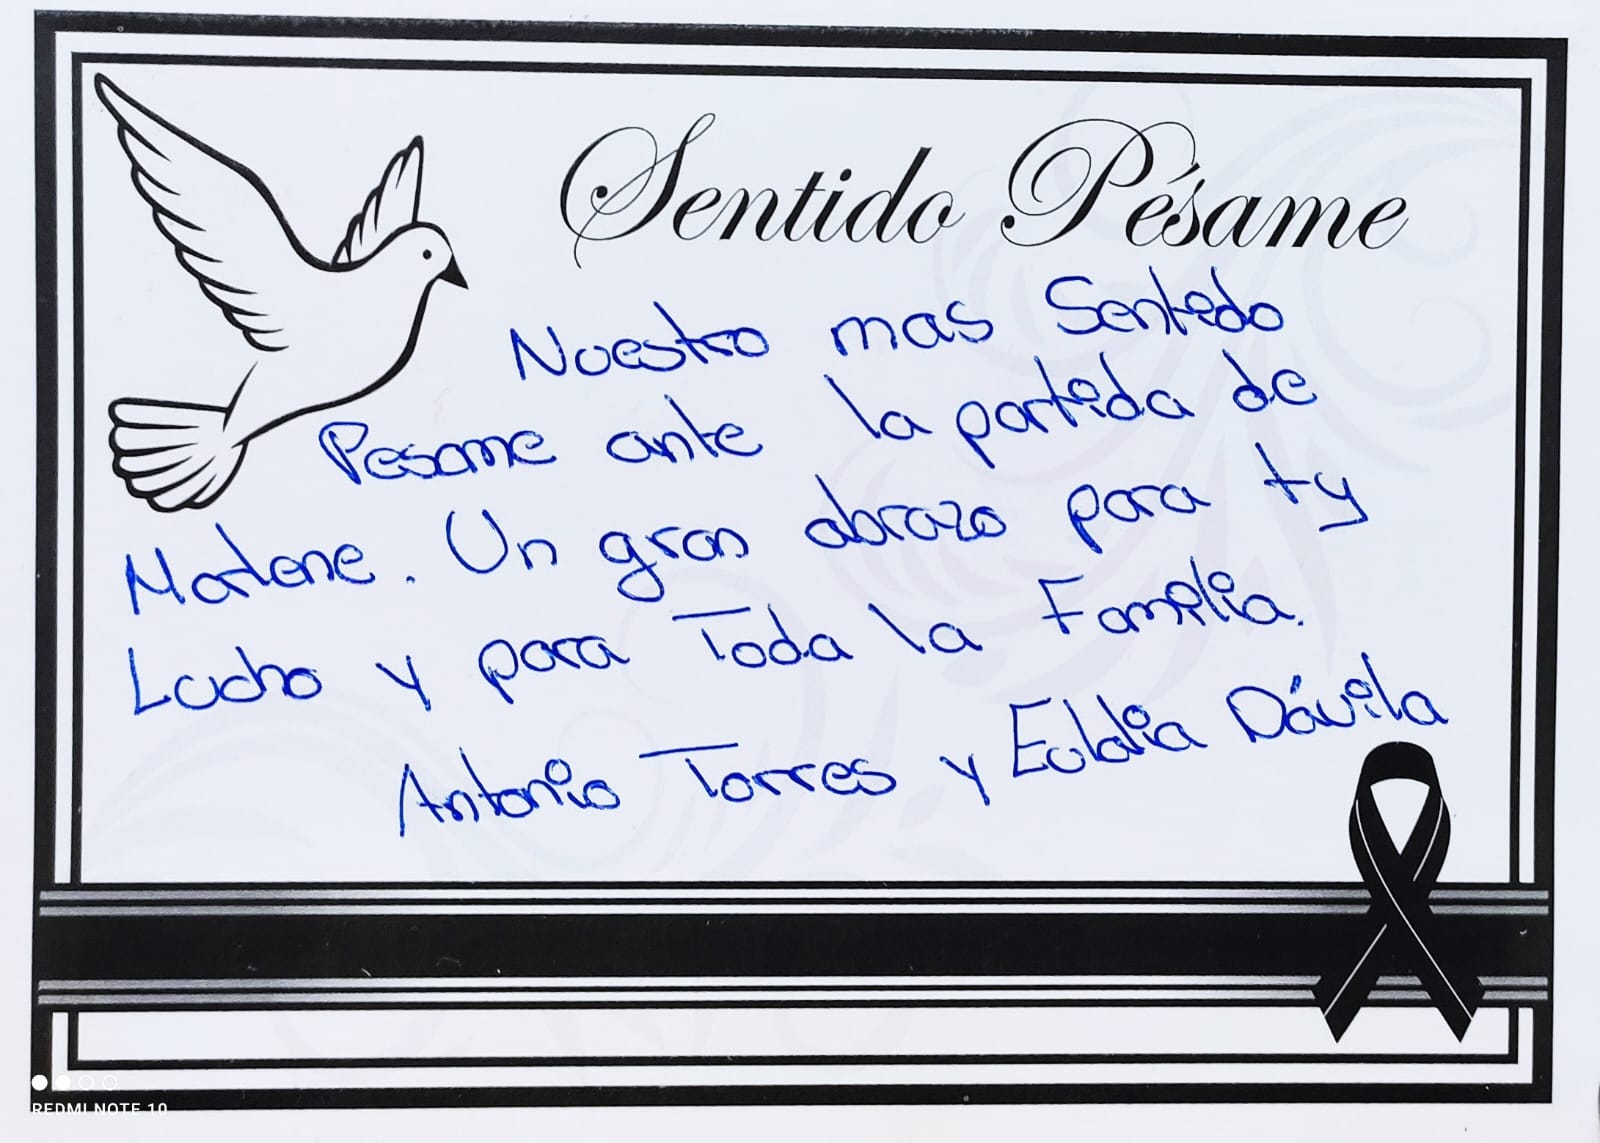 Sentido Pésame
Nuestro mas Sentido
Pesame ante la partida de
Marlene. Un gran abrazo para ty
Lucho y para Toda la Familia.
Antonio Torres y Eulalia Dávila
REDMI NOTE 10